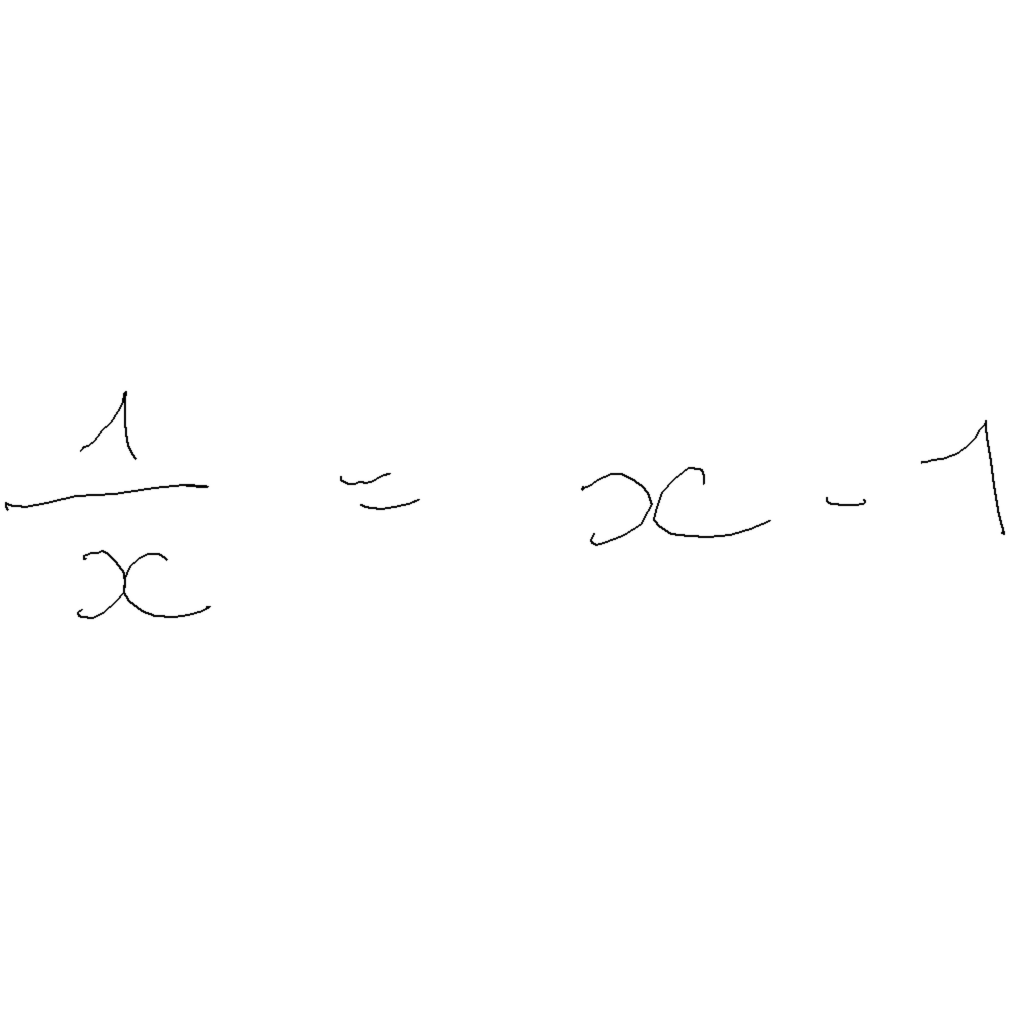 \frac{1}{x} = x - 1